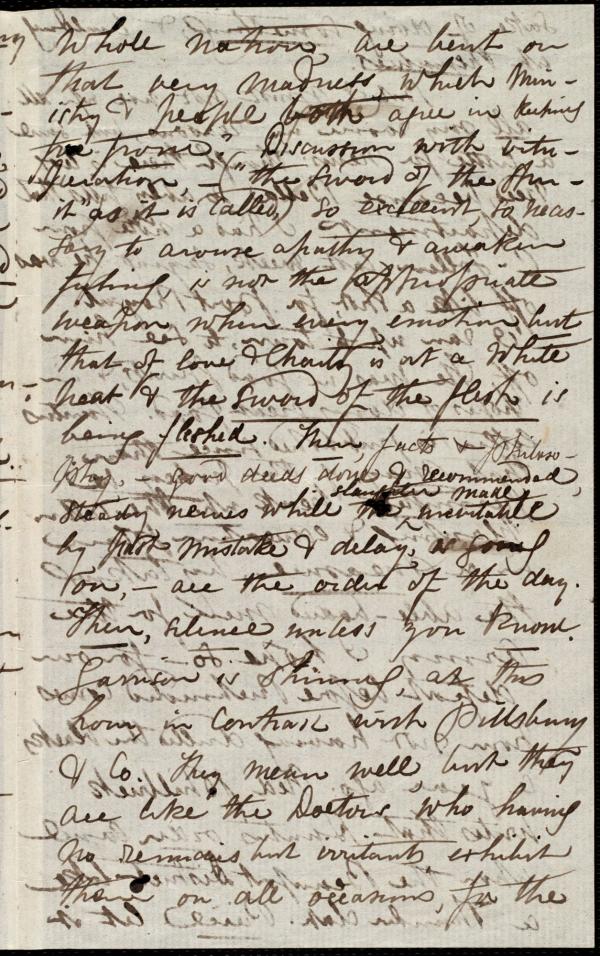 Whole nation, are bent on
that very madness, which Min-
istry & people both agree in keeping
free from." Discussion with vitu-
peration, — ("the Sword of the Spir-
it" as it is called,) so excellent, so neces-
sary to arouse apathy & awaken
feeling is not the appropriate
weapon when every emotion but
that of love & Charity is at a White
heat & the sword of the flesh is
being fleshed. Then, facts & philoso-
phy, — good deeds done & recommended,
steady nerves while the slaughter made inevitable
by past mistake & delay, is going
on, — are the order of the day.
Then, silence unless you know.
Garrison is shining, at this
hour in contrast with Pillsbury
& Co. They mean well but they
are like the Doctors who having
no remedies but irritants, exhibit
them on all occasions, for the